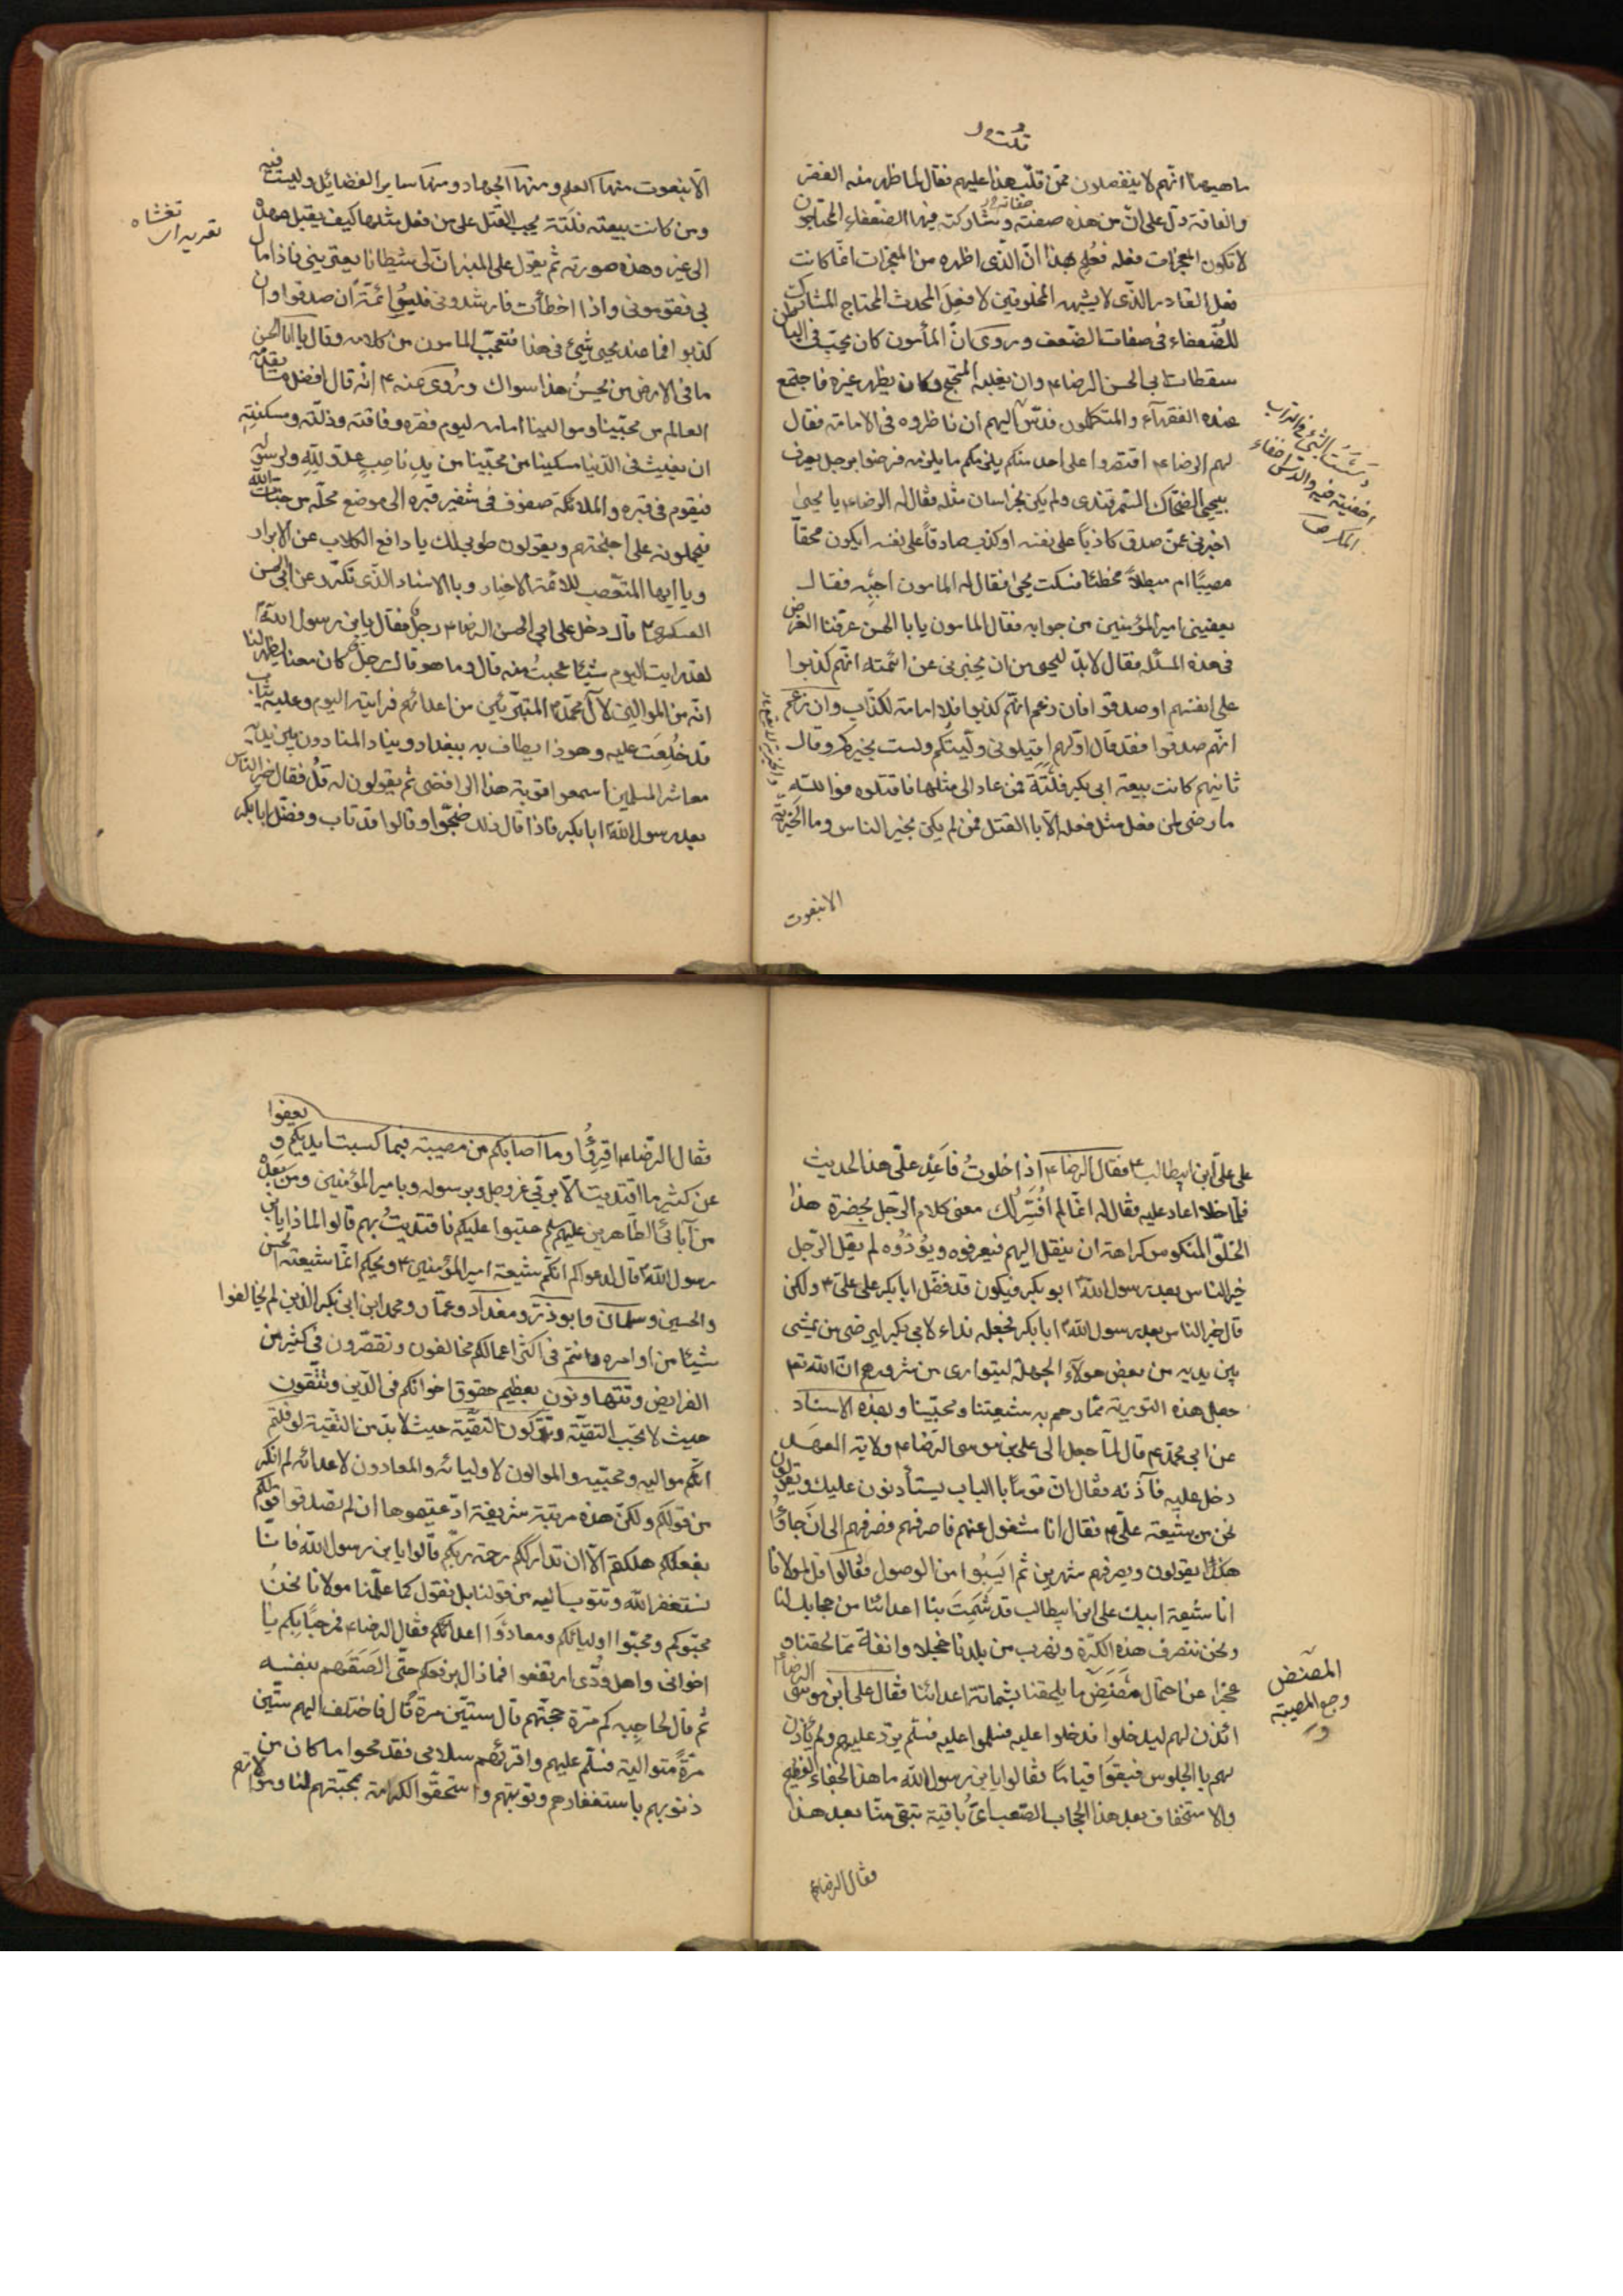 قلت
ماهيهنا انهم لا ينفصلون ممن قلب هذا عليهم فقال لما ظهر منه الفقر
والفاقة دل على ان من هذه صفته وشاركته فيها الضعفاء المحتاجون
صفاته
لا تكون المعجزات فعله فعلم بهذا ان الذى اظهره من المعجزات انما كانت
فعل القادر الذى لا يشبهه المخلوقين لا فعل المحدث المحتاج المشارك
للضعفاء فى صفات الضعف وروى ان المأمون كان يحب فى الباطن
سقطات ابى الحسن الرضا ع وان يغلبه المحتج وكان يظهر غيره فاجتمع
عنده الفقهآء والمتكلمون فدس اليهم ان ناظروه فى الامامة فقال
لهم الرضا ع اقتصروا على احد منكم يلزمكم ما يلزمه فرضوا برجل يعرف
بيحيى الضحاك السمرقندى ولم يكن بخراسان مثله فقال له الرضا ع يا يحيى
اخبرنى عمن صدق كاذبا على نفسه او كذب صادقا على نفسه ايكون محقا
مصيبا ام مبطلا مخطئا فسكت يحيى فقال له المامون اجبه فقال
يعفينى امير المؤمنين من جوابه فقال المامون يا با الحسن عرفنا الغرض
فى هذه المسئله فقال لا بد ليحيى من ان يخبرنى عن ائمته انهم كذبوا
على انفسهم او صدقوا فان زعم انهم كذبوا فلا امامة لكذاب وان زعم
انهم صدقوا فقد قال اولهم اقيلونى وليتكم ولست بخيركم وقال
ثانيهم كانت بيعة ابى بكر فلتة فمن عاد الى مثلها فاقتلوه فوالله
ما رضى لمن فعل مثل فعله الا با القتل فمن لم يكن بخير الناس وما الخيرية
الا بنعوت
دسست الشئ فى التراب
اخفيته فيه والدس اخفاء
المكر ص
الا بنعوت منها العلم ومنها الجهاد ومنها ساير الفضائل وليست فيه
ومن كانت بيعته فلتة يجب القتل على من فعل مثلها كيف يقبل عهده
الى غيره وهذه صورته ثم يقول على المنبر ان لى شيطانا يعترينى فاذا مال
بى فقومونى واذا اخطأت فارشدونى فليسوا ائمة ان صدقوا وان
كذبوا فما عند يحيى شيئ فى هذا فتعجب المامون من كلامه وقال يا ابا الحسن
ما فى الارض من يحسن هذا سواك وروى عنه ع انه قال افضل ما يقدمه
العالم من محبينا وموالينا امامه ليوم فقره وفاقته وذلته ومسكنته
ان يغيث فى الدنيا مسكينا من محبينا من يد ناصب عدو لله ولرسوله
فيقوم فى قبره والملائكة صفوف فى شفير قبره الى موضع محله من جنات الله
فيحملونه على اجنحتهم ويقولون طوبى لك يا دافع الكلاب عن الابرار
ويا ايها المتعصب للائمة الاخيار وبا الاسناد الذى تكرر عن ابى الحسن
العسكرى ع قال دخل على ابى الحسن الرضا ع رجل فقال يا بن رسول الله
لقد رايت اليوم شيئا عجبت منه قال وما هو قال رجل كان معنا يظهر لنا
انه من الموالين لآل محمد المتبرئين من اعدائهم فرايته اليوم وعليه ثياب
قد خلعت عليه وهو ذا يطاف به ببغداد وينادى المنادون بين يديه
معاشر المسلمين اسمعوا توبة هذا الرافضى ثم يقولون له قل فقال خير الناس
بعد رسول الله ابا بكر فاذا قال ذلك ضجوا وقالوا قد تاب وفضل ابا بكر
تغشاه
على على ابن ابيطالب ع فقال الرضا ع اذا خلوت فاعد على هذا الحديث
فلما خلا اعاد عليه فقال له انما لم افسر لك معنى كلام الرجل بحضرة هذا
الخلق المنكوس كراهة ان ينقل اليهم فيعرفوه ويؤذوه لم يقل الرجل
خير الناس بعد رسول الله ابو بكر فيكون قد فضل ابا بكر على على ع ولكن
قال خير الناس بعد رسول الله ابا بكر فجعله نداء لابى بكر ليرضى من يمشى
بين يديه من بعض هولآء الجهلة ليتوارى من شرورهم ان الله تع
جعل هذه التورية مما رحم به شيعتنا ومحبينا وبهذه الاسناد
عن ابى محمد ع قال لما جعل الى على بن موسى الرضا ع ولاية العهد
دخل عليه فآذنه فقال ان قوما با الباب يستأذنون عليك ويقولون
نحن من شيعة على ع فقال انا مشغول عنهم فاصرفهم فصرفهم الى ان جاؤا
هكذا يقولون ويصرفهم شهرين ثم ايسوا من الوصول فقالوا قل لمولانا
انا شيعة ابيك على ابن ابيطالب قد شمت بنا اعدائنا من حجابك لنا
ونحن ننصرف هذه الكرة ونهرب من بلدنا خجلا وانفة مما لحقنا و
عجزا عن احتمال مضض ما يلحقنا بشماتة اعدائنا فقال على ابن موسى الرضا ع
ائذن لهم ليدخلوا فدخلوا عليه فسلموا عليه فسلم يرد عليهم ولم يأذن
لهم با الجلوس فبقوا قياما فقالوا يا بن رسول الله ما هذا الجفاء العظيم
والاستخفاف بعد هذا الحجاب الصعب اى باقية تبقى منا بعد هذا
فقال الرضا ع
المضض
وجع المصيبة
فقال الرضا ع اقرؤا وما اصابكم من مصيبة فبما كسبت ايديكم و يعفوا
عن كثير ما اقتديت الا بربى عز وجل وبرسوله وبامير المؤمنين ومن بعده
من آبائى الطاهرين عليهم عتبوا عليكم فاقتديت بهم قالوا لماذا يا بن
رسول الله قال لدعواكم انكم شيعة امير المؤمنين ع ويحكم انما شيعته الحسن
والحسين وسلمان وابوذر ومقداد وعمار ومحمد ابن ابى بكر الذين لم يخالفوا
شيئا من اوامره وانتم فى اكثر اعمالكم مخالفون وتقصرون فى كثير من
الفرايض وتتهاونون بعظيم حقوق اخوانكم فى الدين وتتقون
حيث لا تجب التقية وتتركون التقية حيث لا بد من التقية لو قلتم
انكم مواليه ومحبيه والموالون لاوليائه والمعادون لاعدائه لم انكر
من قولكم ولكن هذه مرتبة شريفة ادعيتموها ان لم تصدقوا قولكم
بفعلكم هلكتم الا ان تدارككم رحمة ربكم قالوا يا بن رسول الله فانا
نستغفر الله ونتوب اليه من قولنا بل نقول كما علمنا مولانا نحن
محبوكم ومحبوا اوليائكم ومعادوا اعدائكم فقال الرضا ع فمرحبا بكم يا
اخوانى واهل ودى ارتفعوا فما زال يرفعهم حتى الصقهم بنفسه
ثم قال لحاجبه كم مرة حجبتهم قال ستين مرة قال فاختلف اليهم ستين
مرة متوالية فسلم عليهم واقرئهم سلامى فقد محوا ما كان من
ذنوبهم باستغفارهم وتوبتهم واستحقوا الكرامة بمحبتهم لنا وموالاتهم